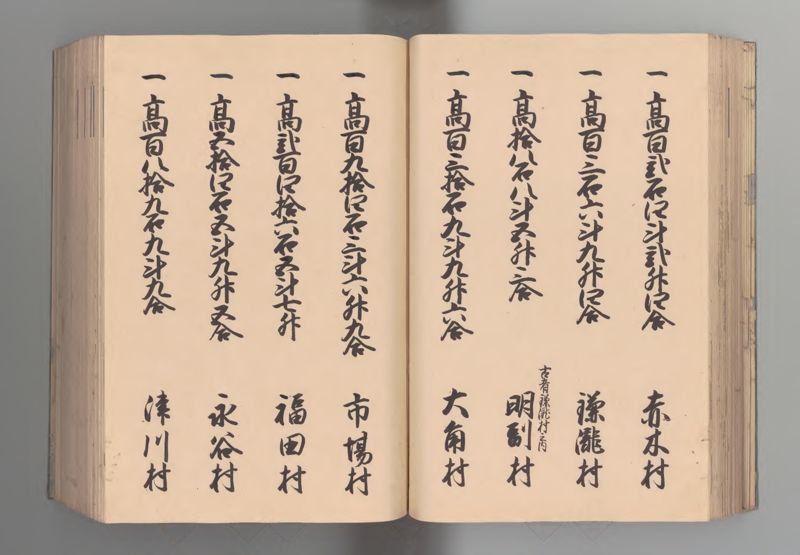 一 高百弐石四斗弐升四合 赤木村
一 高百三石六斗九升四合 鎌瀧村
一 高拾八石八斗五升二合 古者鎌瀧村之内 明剖村
一 高百三拾石九斗九升六合 大角村
一 高百九拾四石三斗六升九合 市場村
一 高弐百四拾六石五斗七升 福田村
一 高五拾四石五斗九升五合 永谷村
一 高百八拾九石九斗九合 津川村